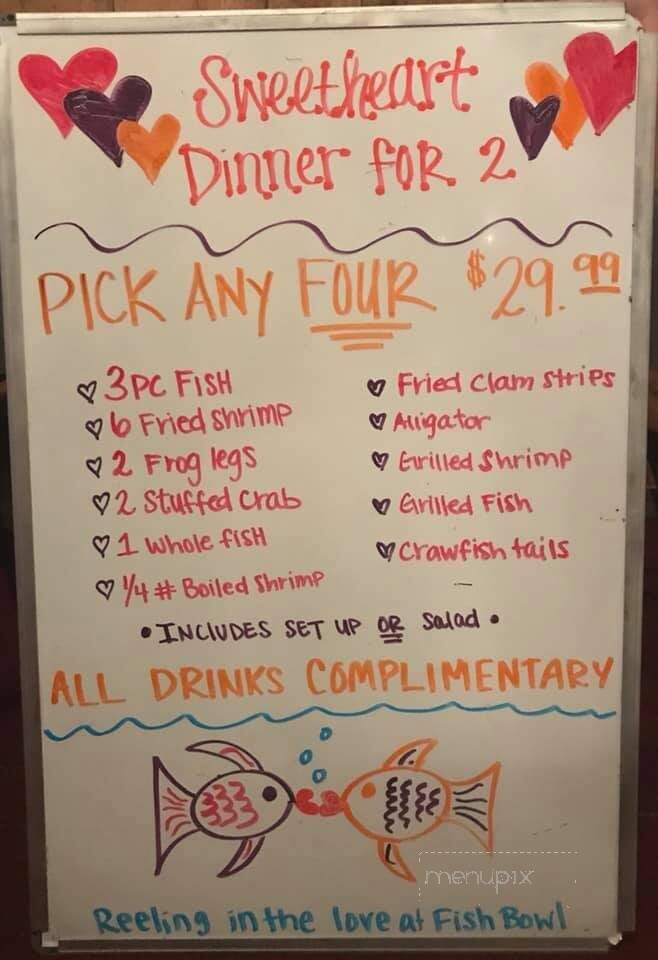 Sweetheart
Dinner FOR 2
PICK ANY FOUR $29.99
3PC FISH
6 Fried Shrimp
2 Frog legs
2 Stuffed Crab
1 Whole fish
1/4 # Boiled Shrimp
Fried Clam Strips
Alligator
Grilled Shrimp
Grilled Fish
Crawfish tails
• INCLUDES SET UP OR Salad •
ALL DRINKS COMPLIMENTARY
menupix
Reeling in the love at Fish Bowl